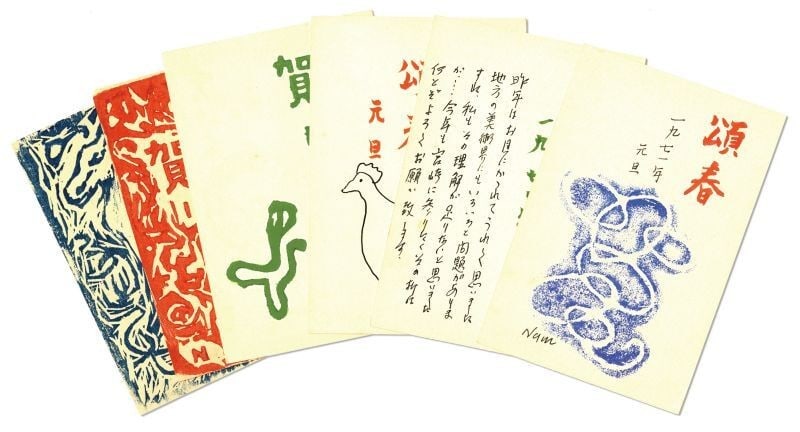 頌春
一九七一年
元旦
Nam
一九七
昨年はお目にかかれてうれしく思いました
地方の美術界にもいろいろと問題がありま
すね、私もその理解が足りないと思います
が…、今年も宮崎に参りたくその折は
何とぞよろしくお願い致します。
頌春
元旦
賀
賀